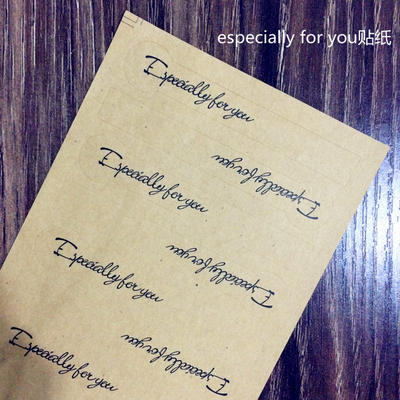 especially for you贴纸
Especially for you
Especially for you
Especially for you
Especially for you
Especially for you
Especially for you
Especially for you